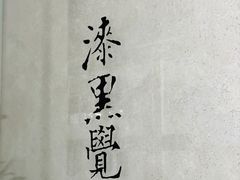 漆黑覺